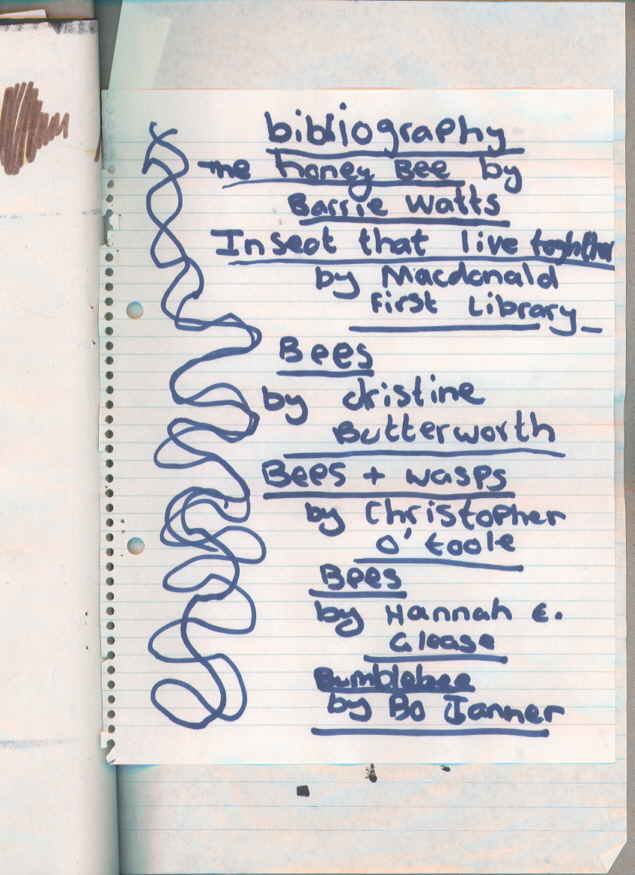 bibliography
The honey Bee by
Barrie Watts
Insect that live
by Macdonald
First Library
Bees
by christine
Butterworth
Bees + wasps
by Christopher
O'toole
Bees
by Hannah E.
Glease
Bumblebee
by Bo Janner